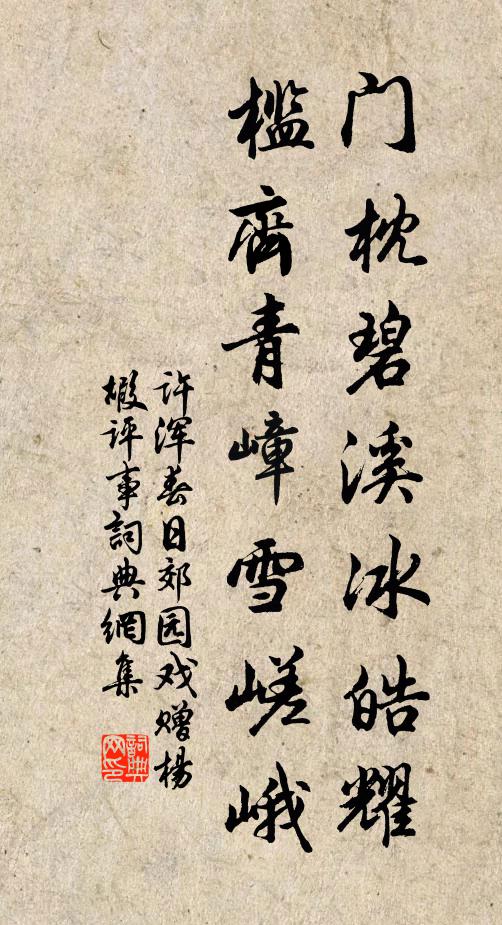 门枕碧溪冰皓耀
槛齊青嶂雪嵯峨
许浑春日郊园戏赠杨
嘏评事詞典網集
詞典
网印